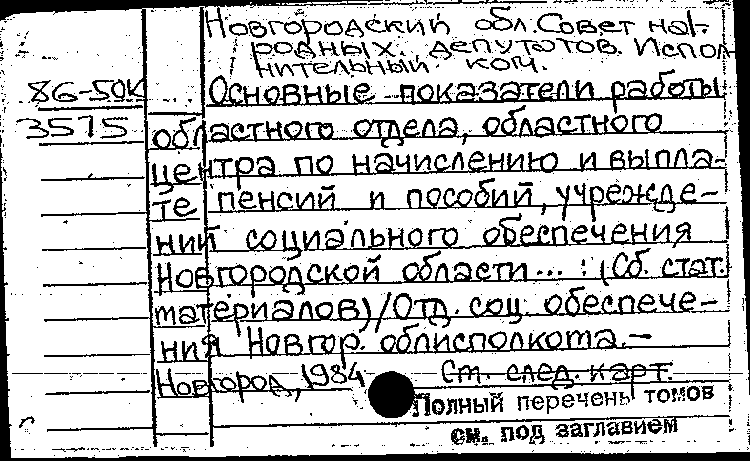 Новгородский обл. Совет на-
родных депутатов. Испол-
нительный ком.
86-50К
Основные показатели работы
3575
областного отдела, областного
центра по начислению и выпла-
те пенсий и пособий, учрежде-
ний социального обеспечения
Новгородской области... : (Сб. стат.
материалов) / Отд. соц. обеспече-
ния Новгор. облисполкома. -
Новгород, 1984
См. след. карт.
Полный перечень томов
см. под заглавием